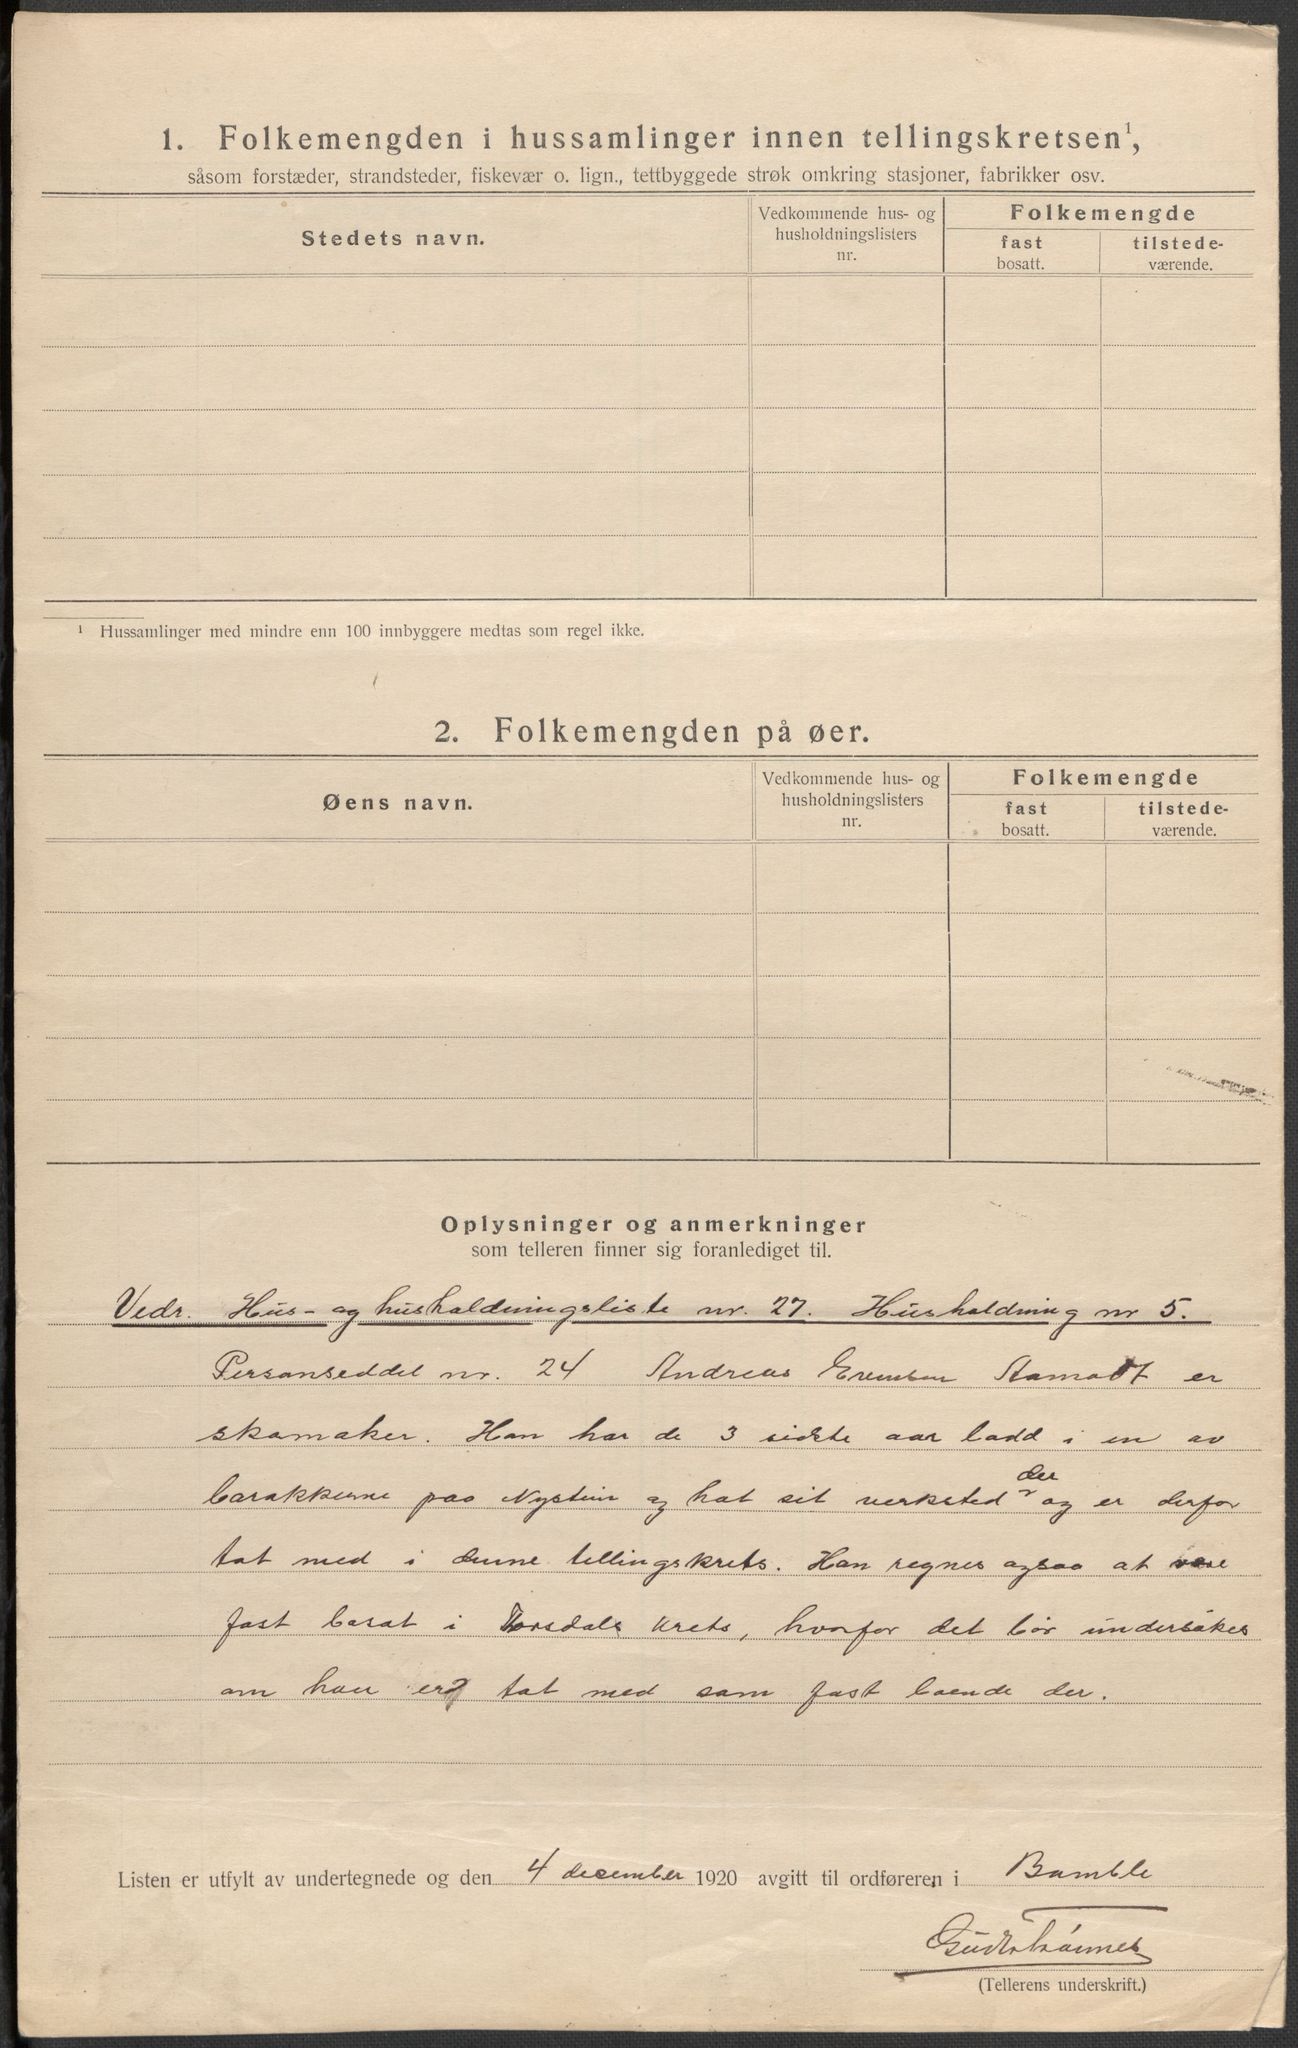 1. Folkemengden i hussamlinger innen tellingskretsen¹,
såsom forstæder, strandsteder, fiskevær o. lign., tettbyggede strøk omkring stasjoner, fabrikker osv.
Stedets navn.
Vedkommende hus- og
husholdningslisters
nr.
Folkemengde
fast
bosatt.
tilstede-
værende.
¹ Hussamlinger med mindre enn 100 innbyggere medtas som regel ikke.
2. Folkemengden på øer.
Øens navn.
Vedkommende hus- og
husholdningslisters
nr.
Folkemengde
fast
bosatt.
tilstede-
værende.
Oplysninger og anmerkninger
som telleren finner sig foranlediget til.
Vedr. Hus- og husholdningsliste nr. 27. Husholdning nr 5.
Personseddel nr. 24 Andreas Evensen Aamodt er
skomaker. Han har de 3 sidste aar bodd i en av
der
barakkerne paa Nystein og hat sit verksted og er derfor
tat med i denne tellingskrets. Han regnes ogsaa at være
fast bosat i krets, hvorfor det bør undersøkes
om han er tat med som fast boende der.
Listen er utfylt av undertegnede og den 4 december 1920 avgitt til ordføreren i Bamble
(Tellerens underskrift.)